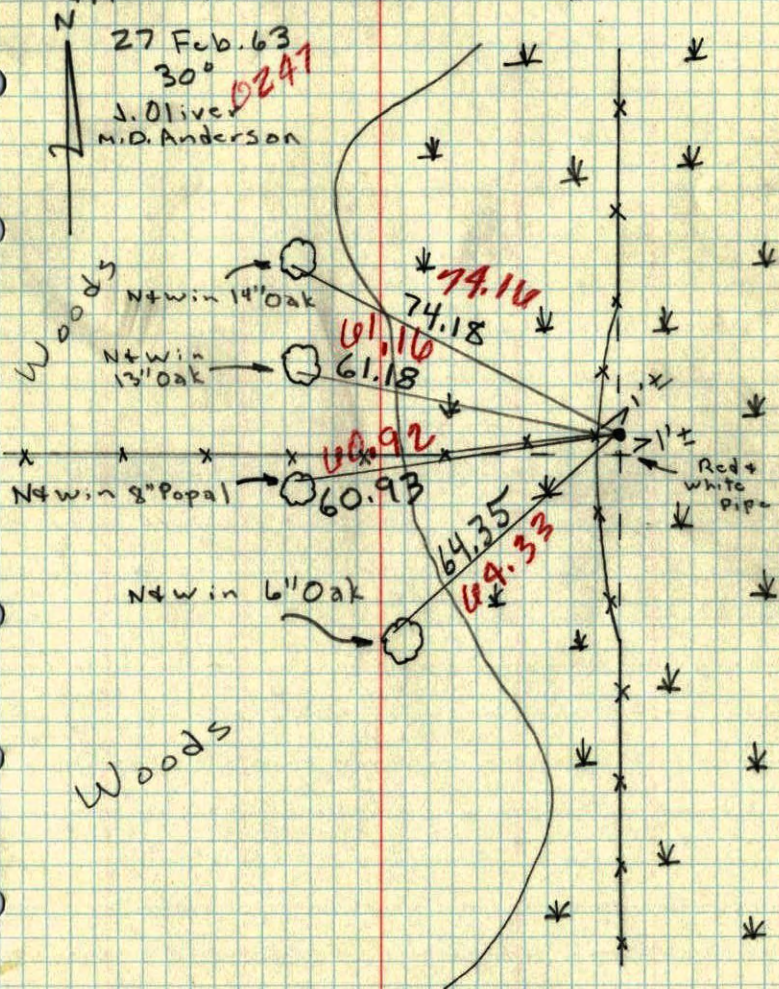 N
27 Feb. 63
30°
0247
J. Oliver
M.D. Anderson
Woods
N+W in 14" Oak
74.16
74.18
N+W in
13" Oak
61.16
61.18
1'±
1'±
Red +
White
Pipe
60.92
60.93
N+W in 8" Popal
64.35
64.33
N+W in 6" Oak
Woods